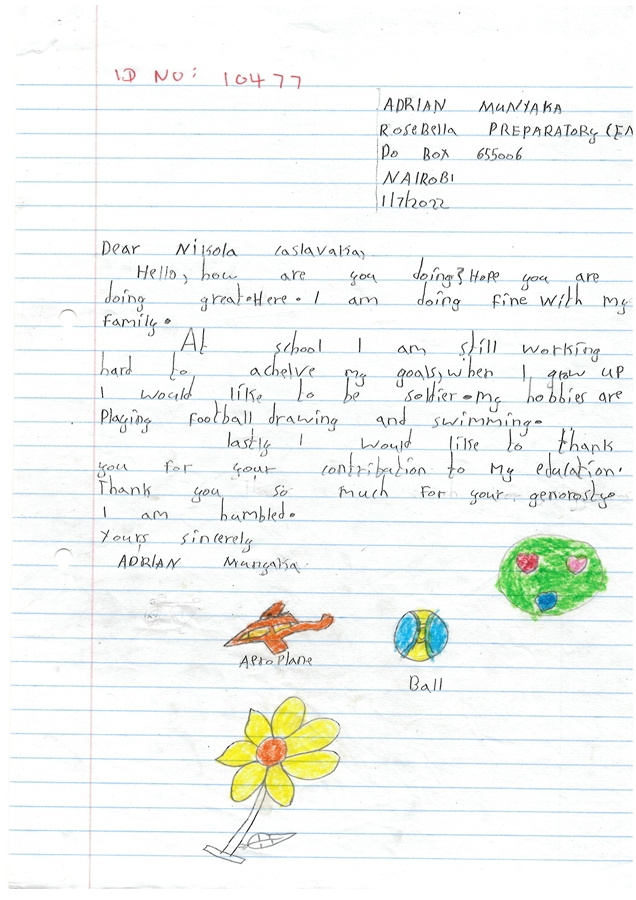 ID NO: 10477
ADRIAN MUNYAKA
RoseBella PREPARATORY CEN
PO BOX 655006
NAIROBI
1/7/2022
Dear Nikola Caslavaka,
Hello, how are you doing? Hope you are
doing great. Here. I am doing fine with my
family.
At school I am still working
hard to achelve my goals, when I grow up
I would like to be soldier. my hobbies are
Playing football drawing and swimming.
lastly I would like to thank
you for your contribution to my edulation.
Thank you so much for your generosty.
I am humbled.
Yours sincerely
ADRIAN Mungaka.
AeroPlane
Ball